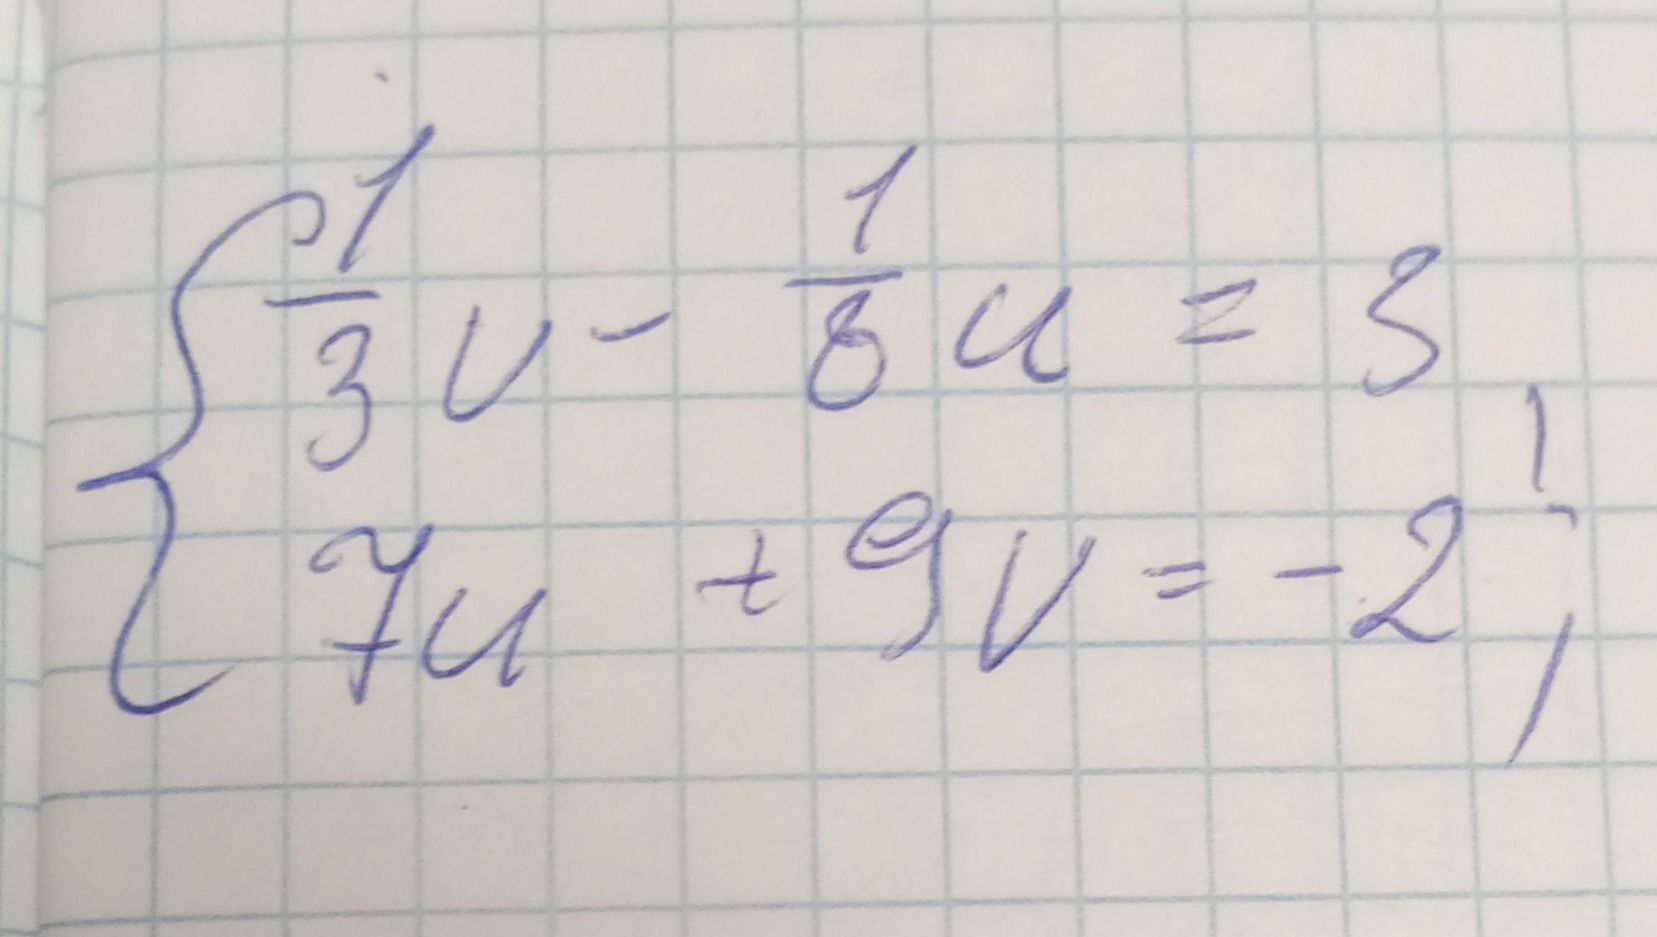 { 1/3 v - 1/8 u = 3,
7u + 9v = -2;